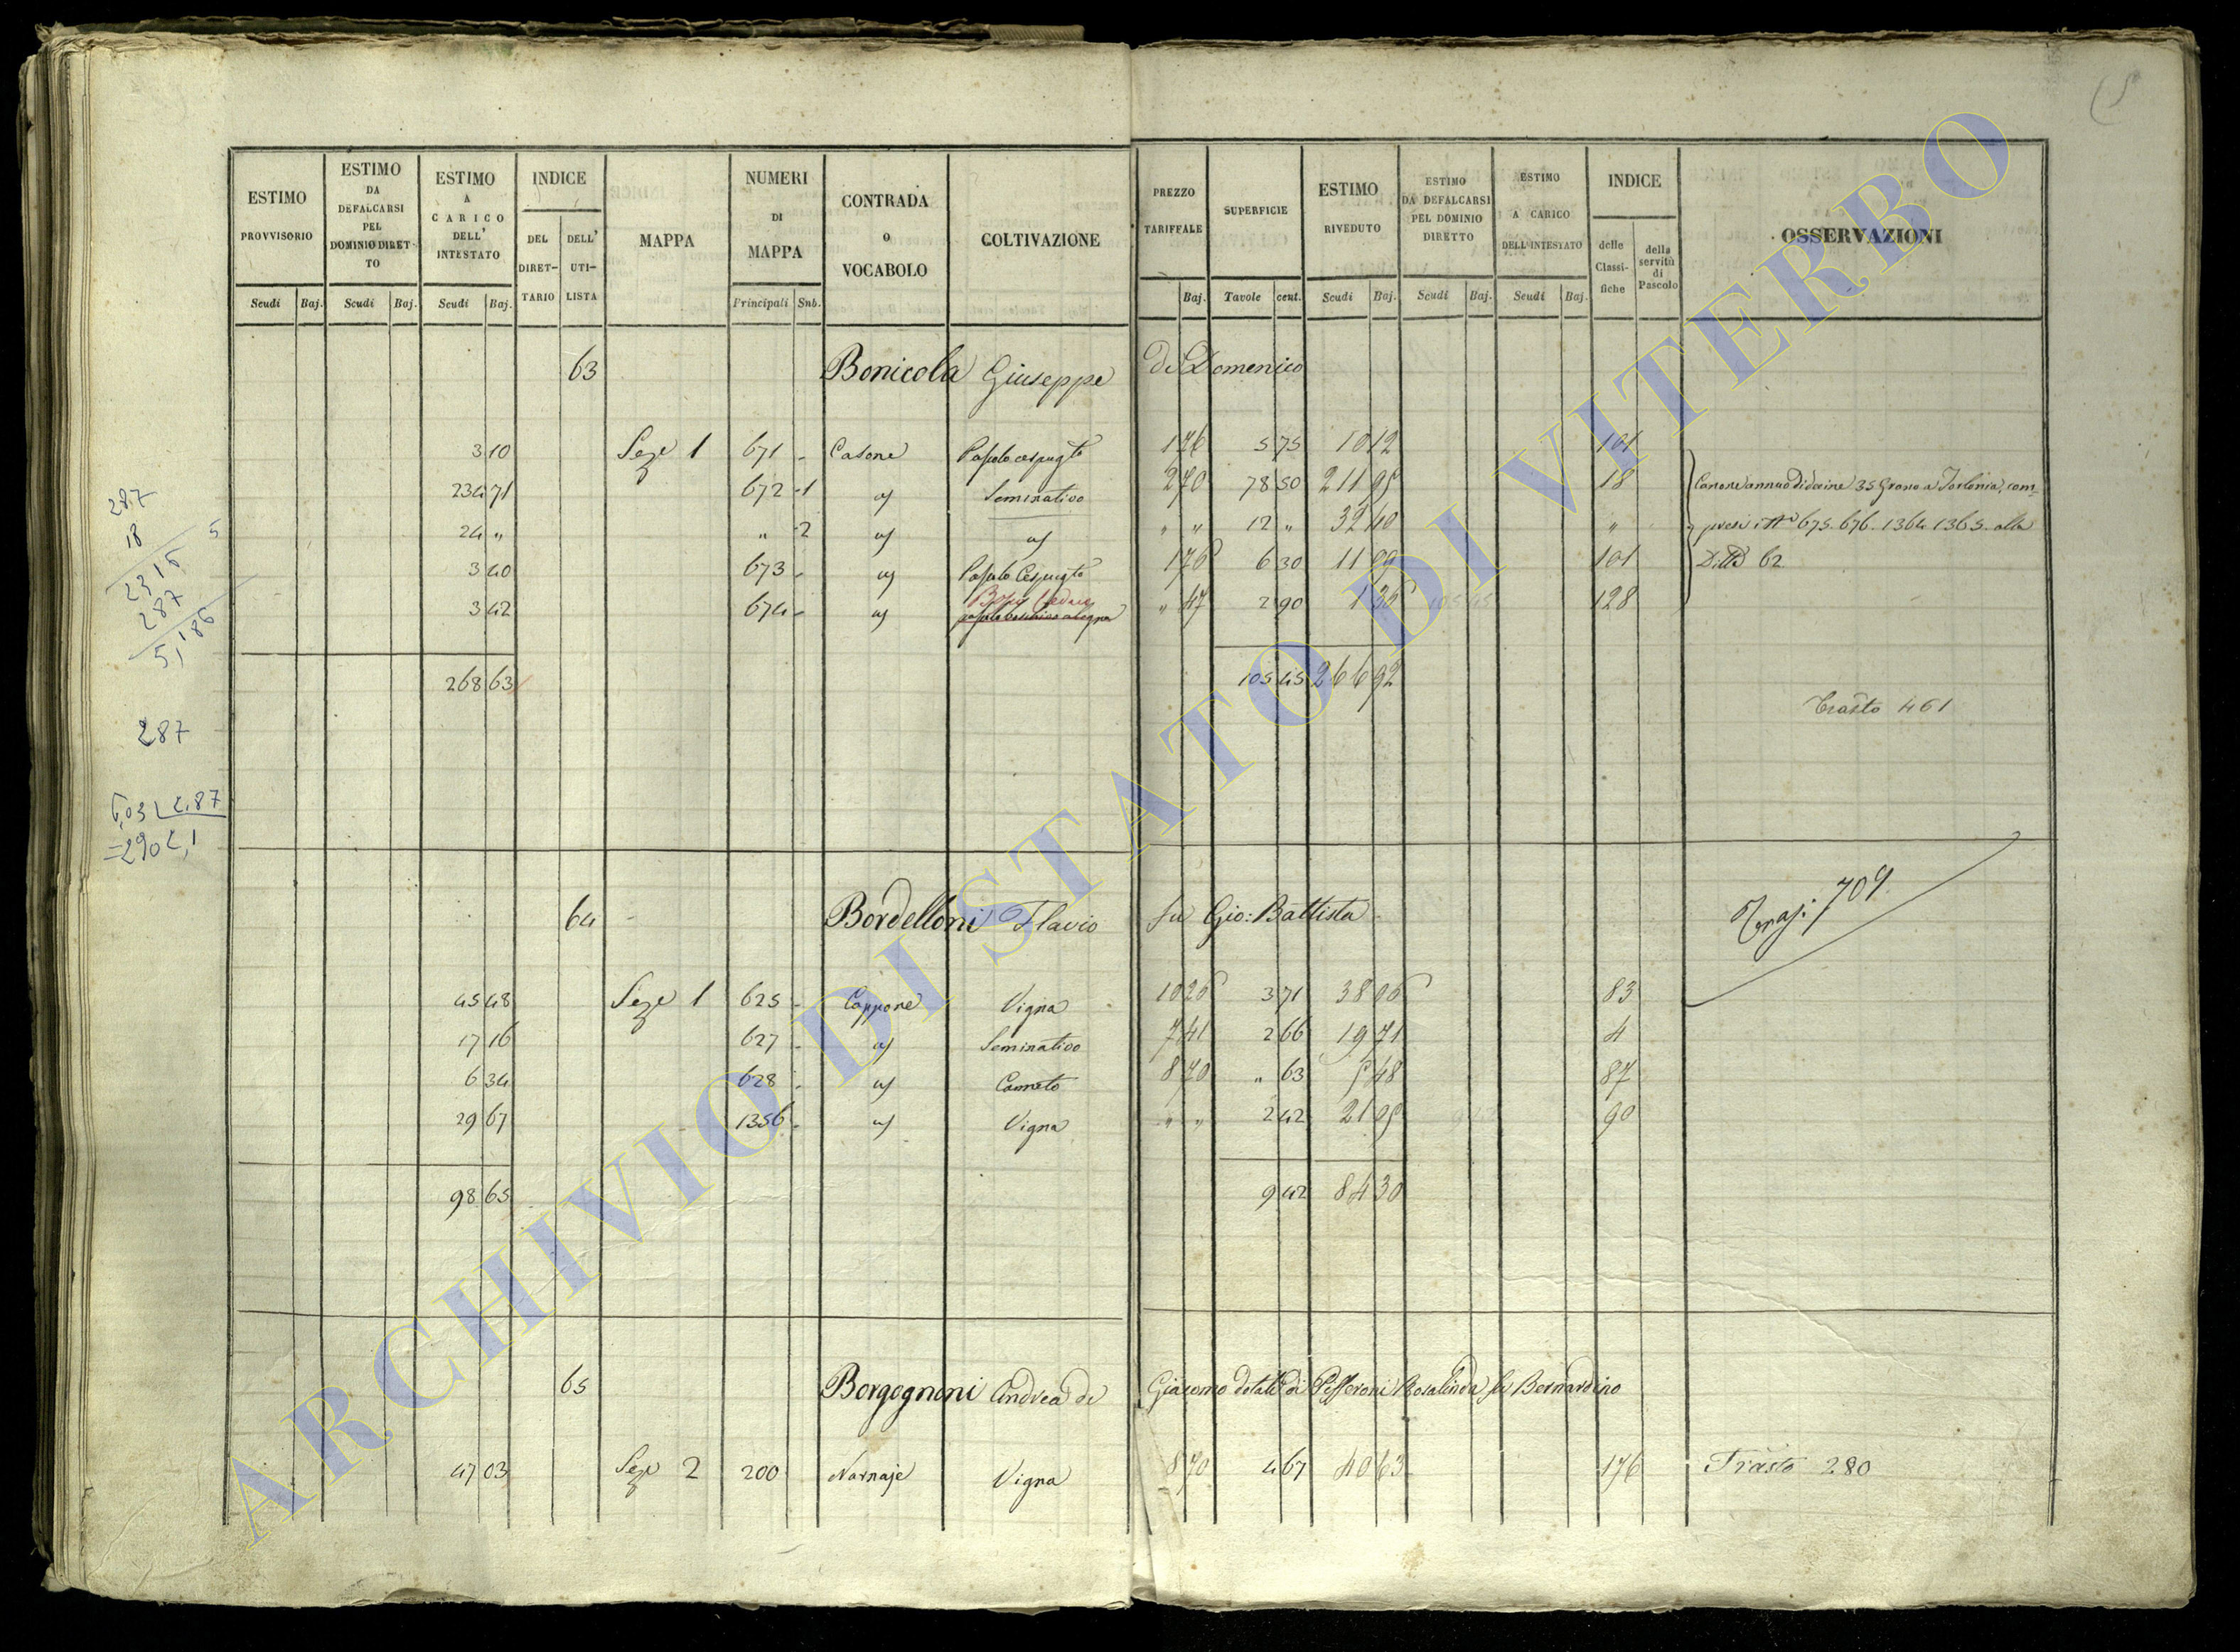 ESTIMO PROVVISORIO | ESTIMO DA DEFALCARSI PEL DOMINIO DIRETTO | ESTIMO A CARICO DELL' INTESTATO | INDICE | MAPPA | NUMERI DI MAPPA | CONTRADA o VOCABOLO | COLTIVAZIONE | PREZZO TARIFFALE | SUPERFICIE | ESTIMO RIVEDUTO | ESTIMO DA DEFALCARSI PEL DOMINIO DIRETTO | ESTIMO A CARICO DELL'INTESTATO | INDICE | OSSERVAZIONI
DEL DIRETTARIO | DELL' UTILISTA | delle Classifiche | della servitù di Pascolo
Scudi | Baj. | Scudi | Baj. | Scudi | Baj. | Principali | Snb. | Baj. | Tavole | cent. | Scudi | Baj. | Scudi | Baj. | Scudi | Baj.
63 Bonicola Giuseppe di Domenico
3 10 Seze 1 671 - Casone 176 5 75 10 12 101
234 71 672 -1 " Seminativo 270 78 50 211 95 18 Canone annuo di decine 35 Grano a Torlonia, com-
24 " " 2 " " " " 12 " 32 40 " presi i Ni 675. 676. 1364. 1365. alla
3 40 673 - " 176 6 30 11 09 101 Ditta 62
3 42 674 - " " 47 2 90 1 36 128
268 63 105 45 266 92
Trasto 461
287
18
2316
287
5,186
287
64 Bordelloni Flavio fu Gio: Battista
Tras: 709
45 48 Seze 1 625 - Cappone Vigna 1026 3 71 38 06 83
17 16 627 - " Seminativo 741 2 66 19 71 4
6 34 628 - " Canneto 870 " 63 5 48 87
29 67 1356 - " Vigna " " 2 42 21 05 90
98 65 9 42 84 30
65 Borgognoni Andrea di Giacomo dotale di Pifferoni Rosalinda fu Bernardino
47 03 Seze 2 200 Narnaje Vigna 870 4 67 40 63 176 Trasto 280
ARCHIVIO DI STATO DI VITERBO